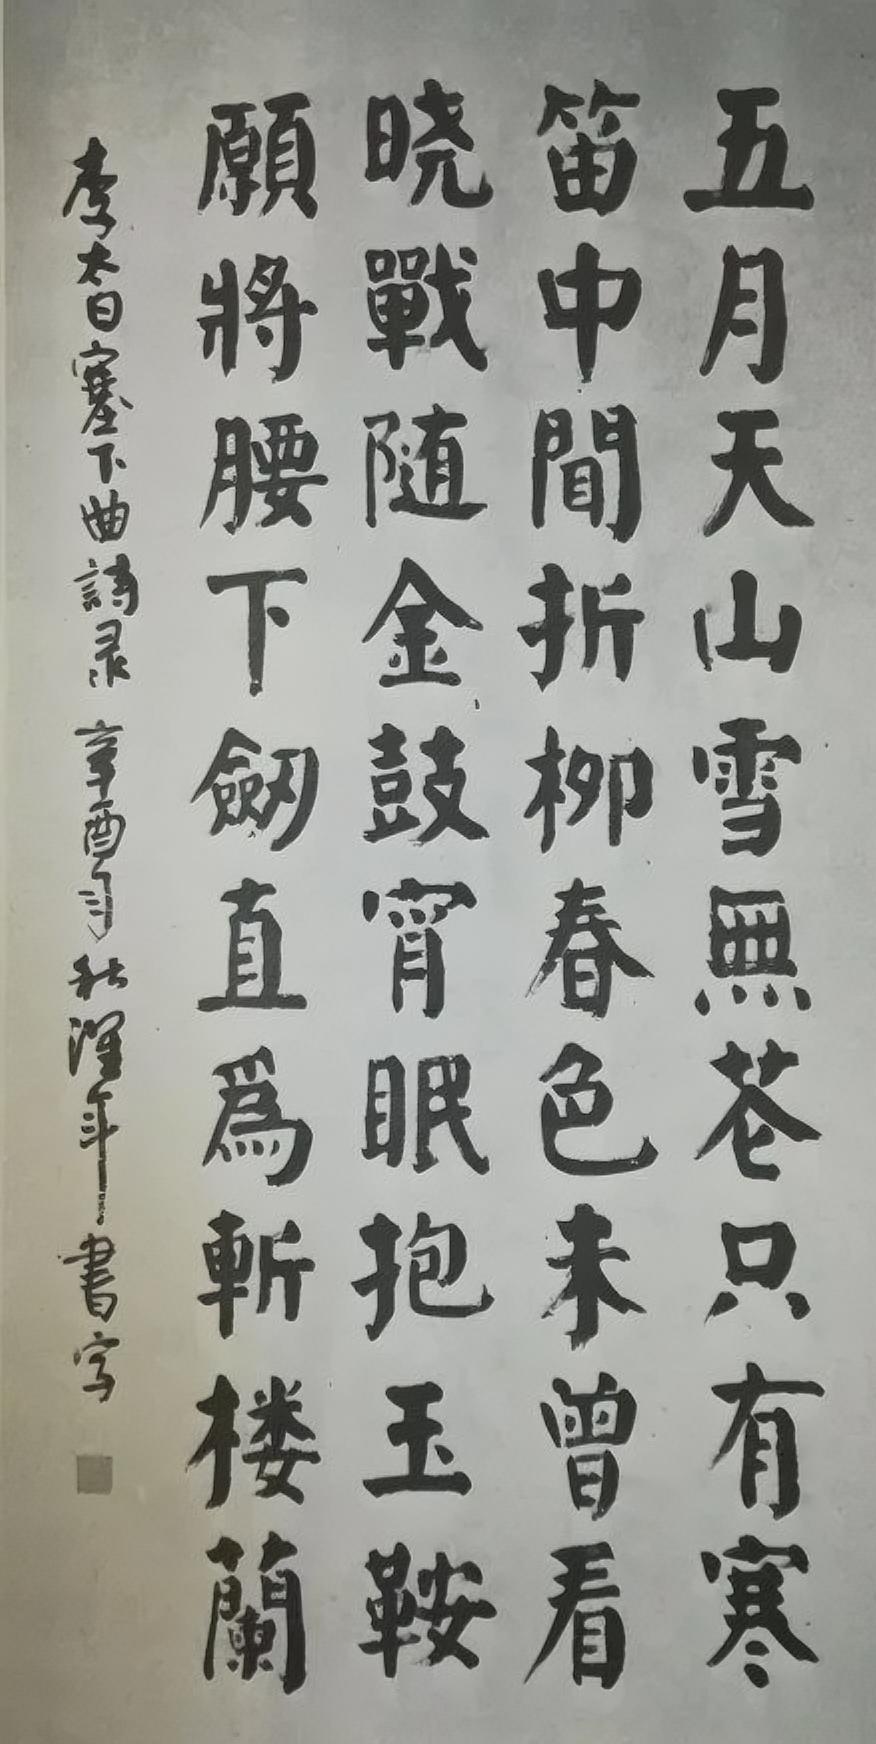 五月天山雪無花只有寒
笛中間折柳春色未曾看
晓戰随金鼓宵眠抱玉鞍
願將腰下劔直爲斬楼蘭
李太白塞下曲詩录 辛酉秋年書写